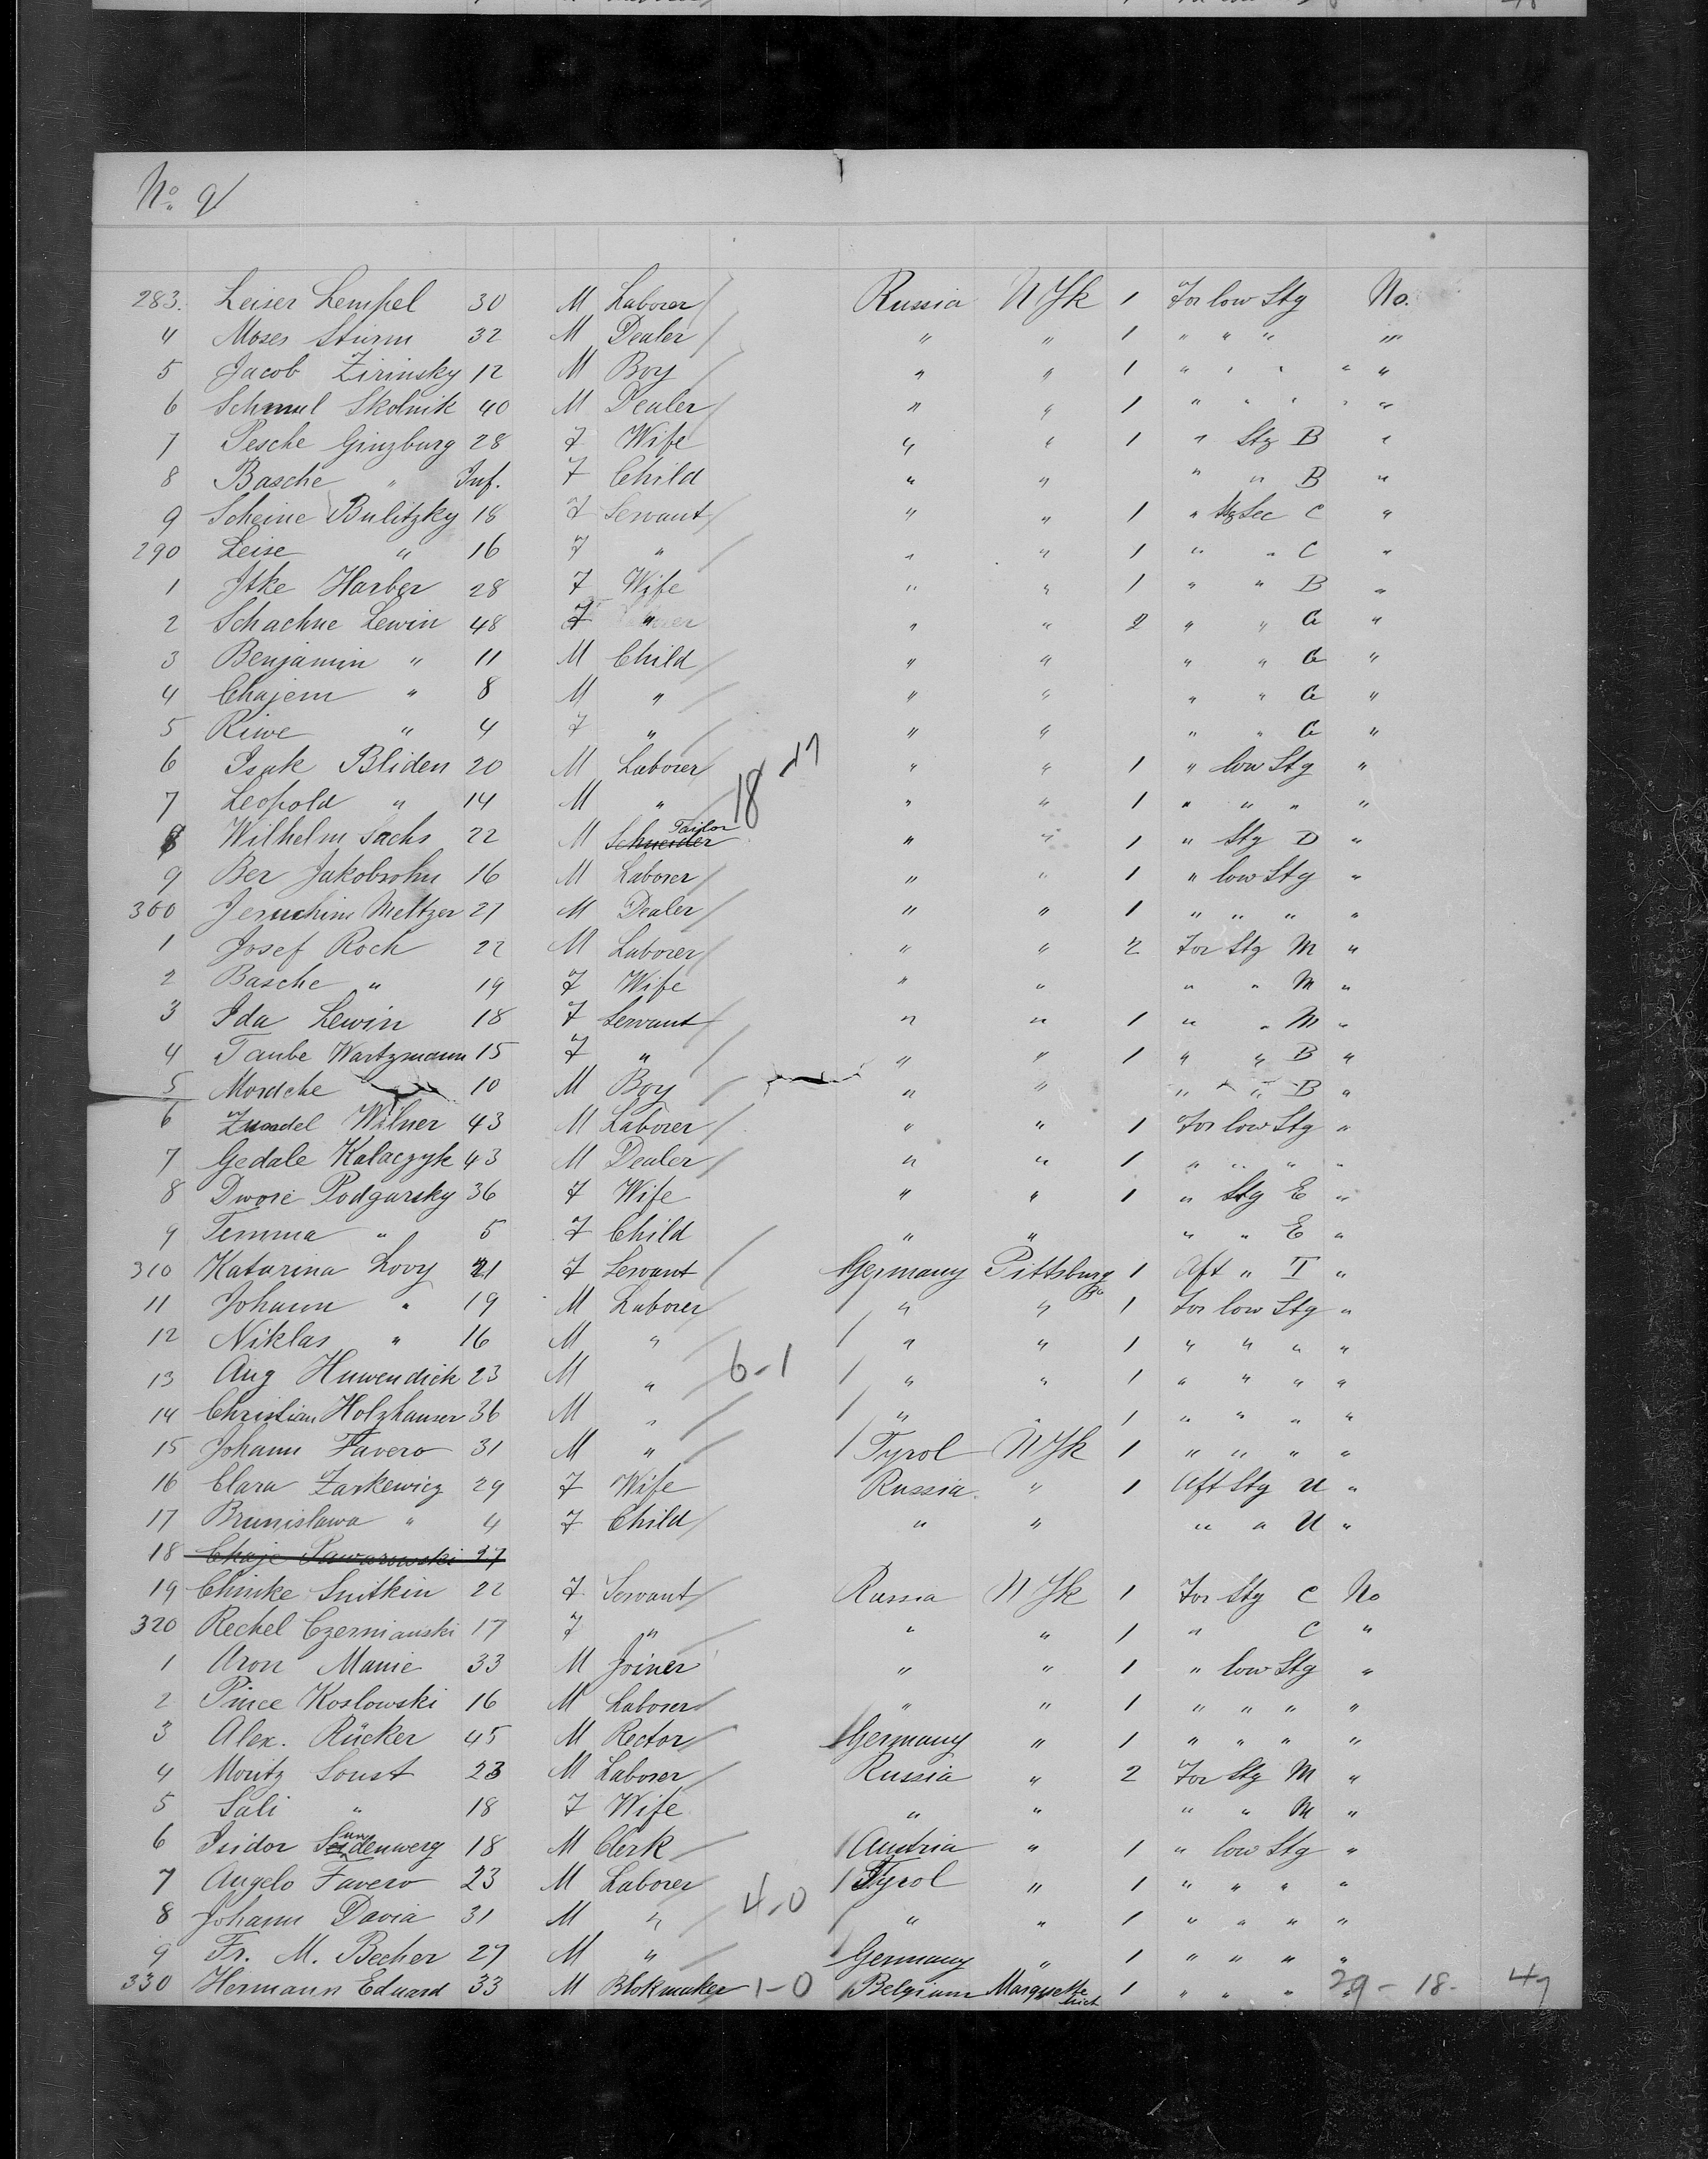 No 9/
283. Leiser Lempel 30 M Laborer Russia N Yk 1 For low Stg No.
4 Moses Sturm 32 M Dealer " " 1 " " " "
5 Jacob Zirinsky 12 M Boy " " 1 " " " " "
6 Schmul Skolnik 40 M Dealer " " 1 " " " " "
7 Pesche Ginzburg 28 F Wife " " 1 " Stg B "
8 Basche " Inf. F Child " " " " B "
9 Scheine Bulitzky 18 F Servant " " 1 " Stg Sec C "
290 Leise " 16 F " " " 1 " " C "
1 Itke Harber 28 F Wife " " 1 " " B "
2 Schachne Lewin 48 F " " " 2 " " G "
3 Benjamin " 11 M Child " " " " G "
4 Chajem " 8 M " " " " " G "
5 Riwe " 4 F " " " " " G "
6 Isak Bliden 20 M Laborer 18-17 " " 1 " low Stg "
7 Leopold " 14 M " " " 1 " " " "
8 Wilhelm Sachs 22 M Schneider Tailor " " 1 " Stg D "
9 Ber Jakobsohn 16 M Laborer " " 1 " low Stg "
300 Jeruchim Meltzer 21 M Dealer " " 1 " " " "
1 Josef Roch 22 M Laborer " " 2 For Stg M "
2 Basche " 19 F Wife " " " " M "
3 Ida Lewin 18 F Servant " " 1 " " M "
4 Taube Wartzmann 15 F " " " 1 " " B "
5 Mordche 10 M Boy " " " " " B "
6 Zundel Wilner 43 M Laborer " " 1 For low Stg "
7 Gedale Kalaczyk 43 M Dealer " " 1 " " " "
8 Dwore Podgursky 36 F Wife " " 1 " Stg E "
9 Temma " 5 F Child " " " " E "
310 Katarina Lovy 21 F Servant Germany Pittsburg Pa 1 Aft " T "
11 Johann " 19 M Laborer " " 1 For low Stg "
12 Niklas " 16 M " " " 1 " " " "
13 Aug Huwendick 23 M " 6-1 " " 1 " " " "
14 Christian Holzhauser 36 M " " " 1 " " " "
15 Johann Favero 31 M " Tyrol N Yk 1 " " " "
16 Clara Zarkewicz 29 F Wife Russia " 1 Aft Stg U "
17 Brunislawa " 4 F Child " " " " U "
18 Chaje Sawarowski 27
19 Chinke Snitkin 22 F Servant Russia N Yk 1 For Stg C No
320 Rechel Czernianski 17 F " " " 1 " C "
1 Aron Manie 33 M Joiner " " 1 " low Stg "
2 Pince Koslowski 16 M Laborer " " 1 " " " "
3 Alex. Rücker 45 M Rector Germany " 1 " " " "
4 Moritz Soust 23 M Laborer Russia " 2 For Stg M "
5 Sali " 18 F Wife " " " " M "
6 Isidor 18 M Clerk Austria " 1 " low Stg "
7 Angelo Favero 23 M Laborer Tyrol " 1 " " " "
8 Johann Davia 31 M " 4-0 " " 1 " " " "
9 Fr. M. Becher 27 M " Germany " 1 " " " "
330 Hermann Eduard 33 M Blokmaker 1-0 Belgium Marquette Mich 1 " " " 29-18- 47